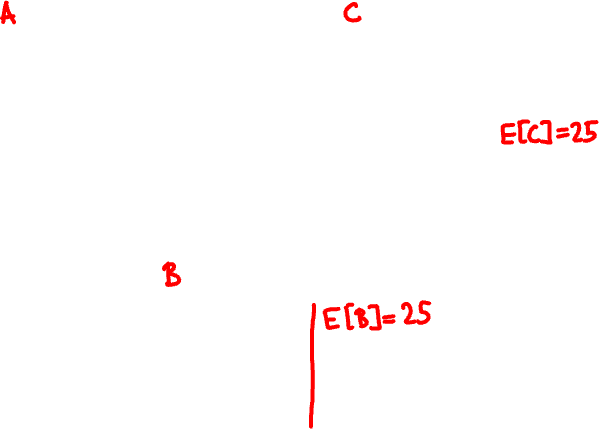 A
C
E[C]=25
B
E[B]=25